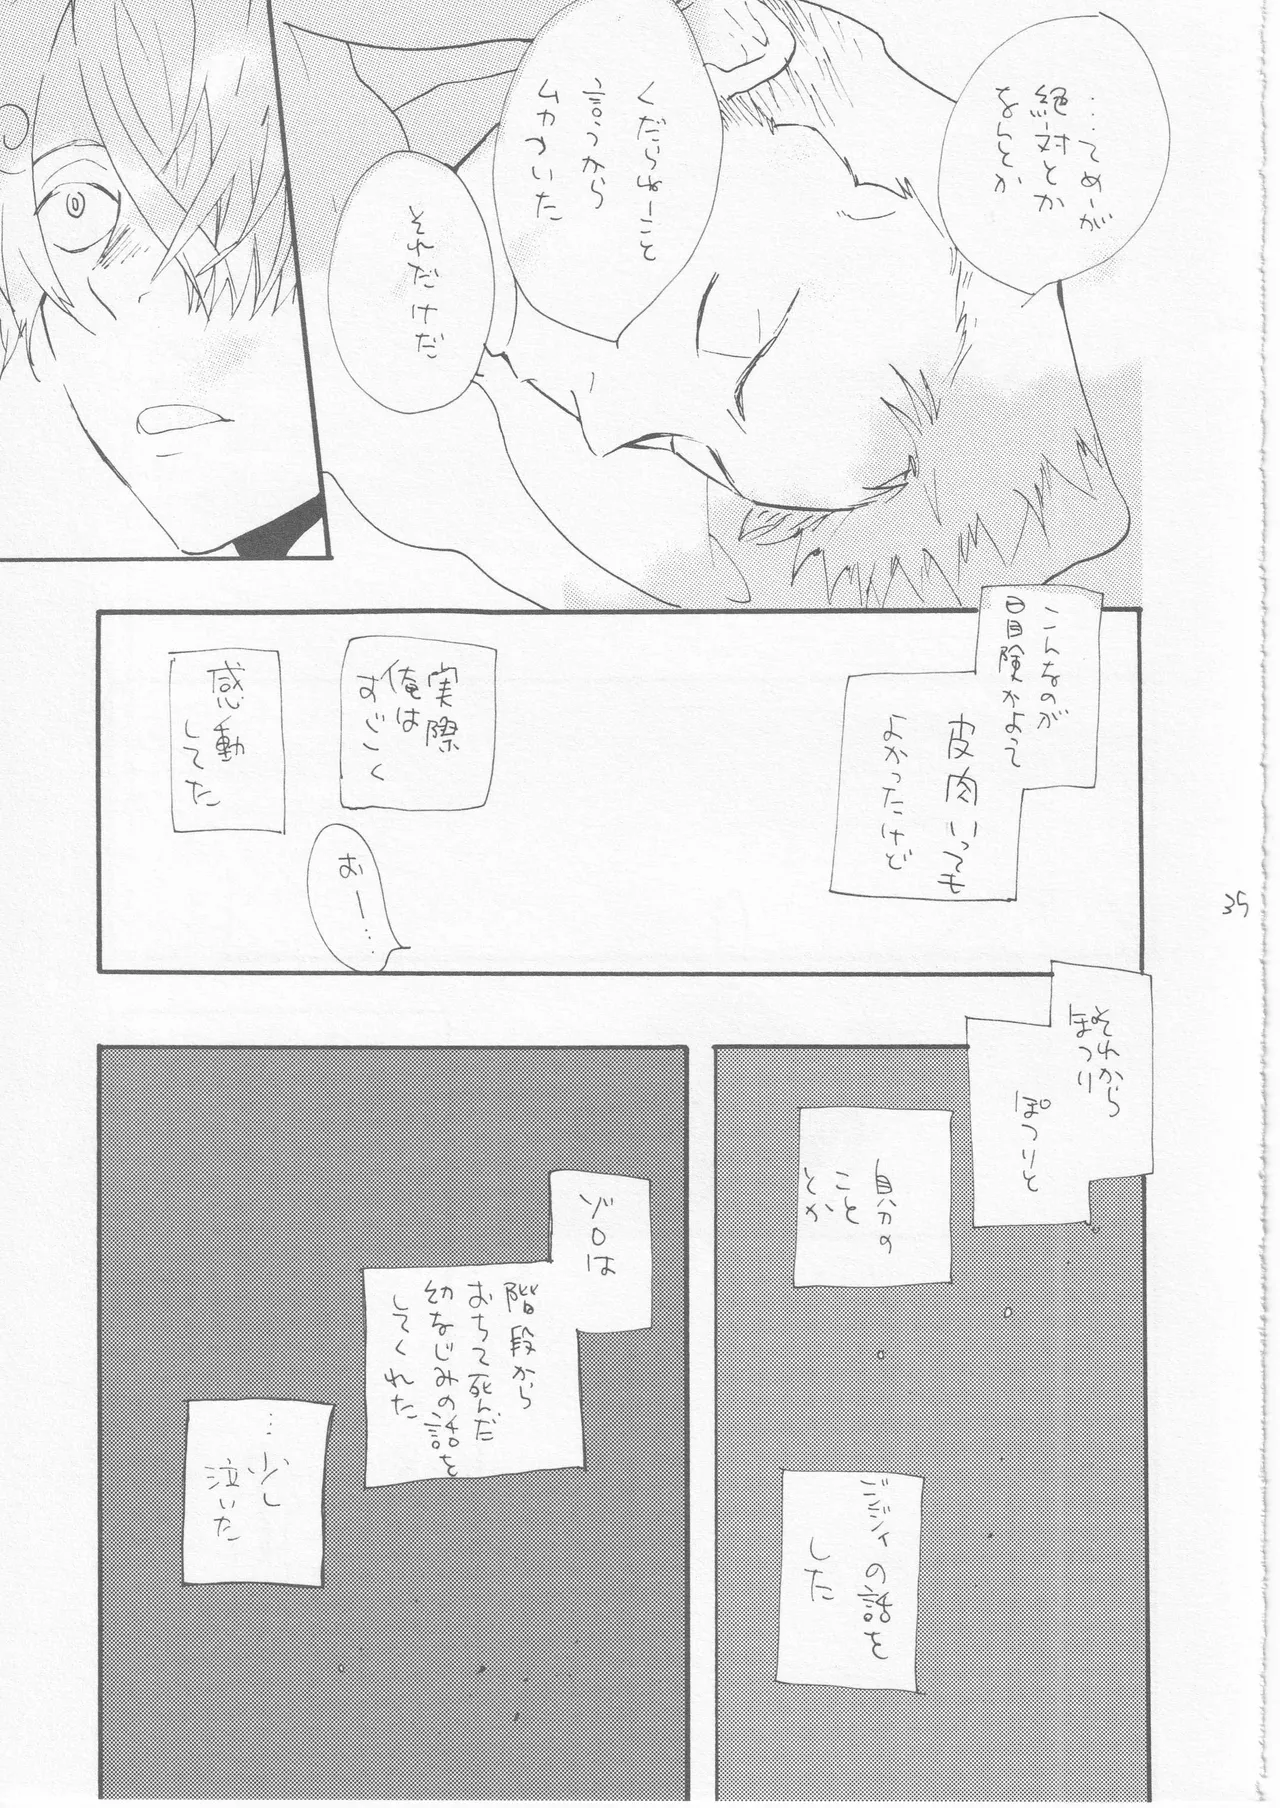 …てめーが
絶対とか
なんとか
くだらねーこと
言うから
ムカついた
それだけだ
こんなのが
冒険かよって
皮肉いっても
よかったけど
実際
俺は
すごく
感動
してた
おー…
それから
ぽつり
ぽつりと
自分の
こと
とか
ジジイの話を
した
ゾロは
階段から
おちて死んだ
幼なじみの話を
してくれた
…少し
泣いた
35